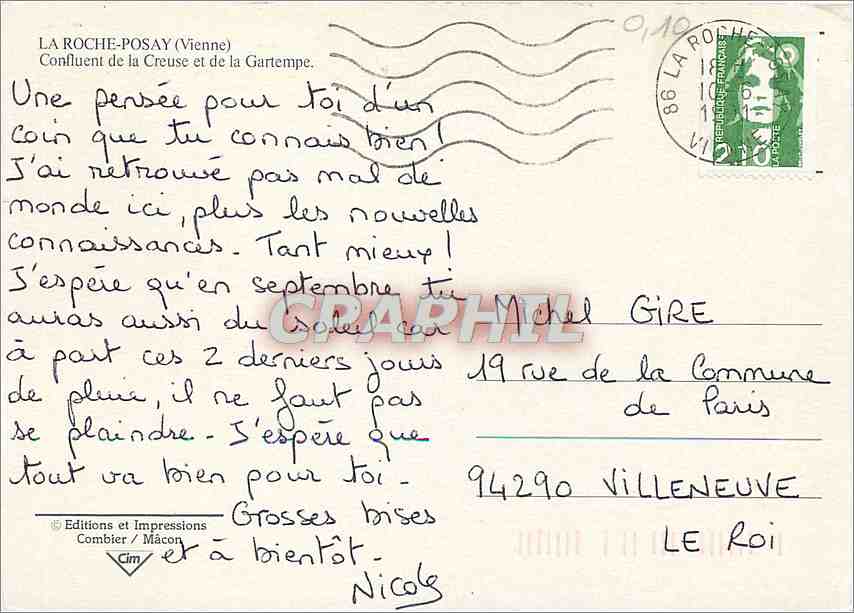 LA ROCHE-POSAY (Vienne)
Confluent de la Creuse et de la Gartempe.
0,10
86 LA ROCHE
18
10 6
RÉPUBLIQUE FRANÇAISE
2,10
LA POSTE
Une pensée pour toi d'un
coin que tu connais bien!
J'ai retrouvé pas mal de
monde ici, plus les nouvelles
connaissances. Tant mieux!
J'espère qu'en septembre tu
auras aussi du soleil car
à part ces 2 derniers jours
de pluie, il ne faut pas
se plaindre - J'espère que
tout va bien pour toi -
Grosses bises
et à bientôt -
Nicole
CPAPHIL
Michel GIRE
19 rue de la Commune
de Paris
94290 VILLENEUVE
LE ROI
© Editions et Impressions
Combier / Mâcon
Cim